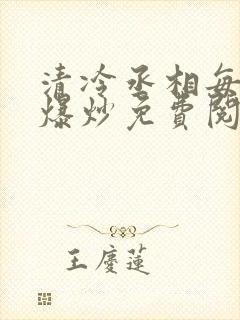 清冷丞相每
爆炒免費閱
王慶蓮